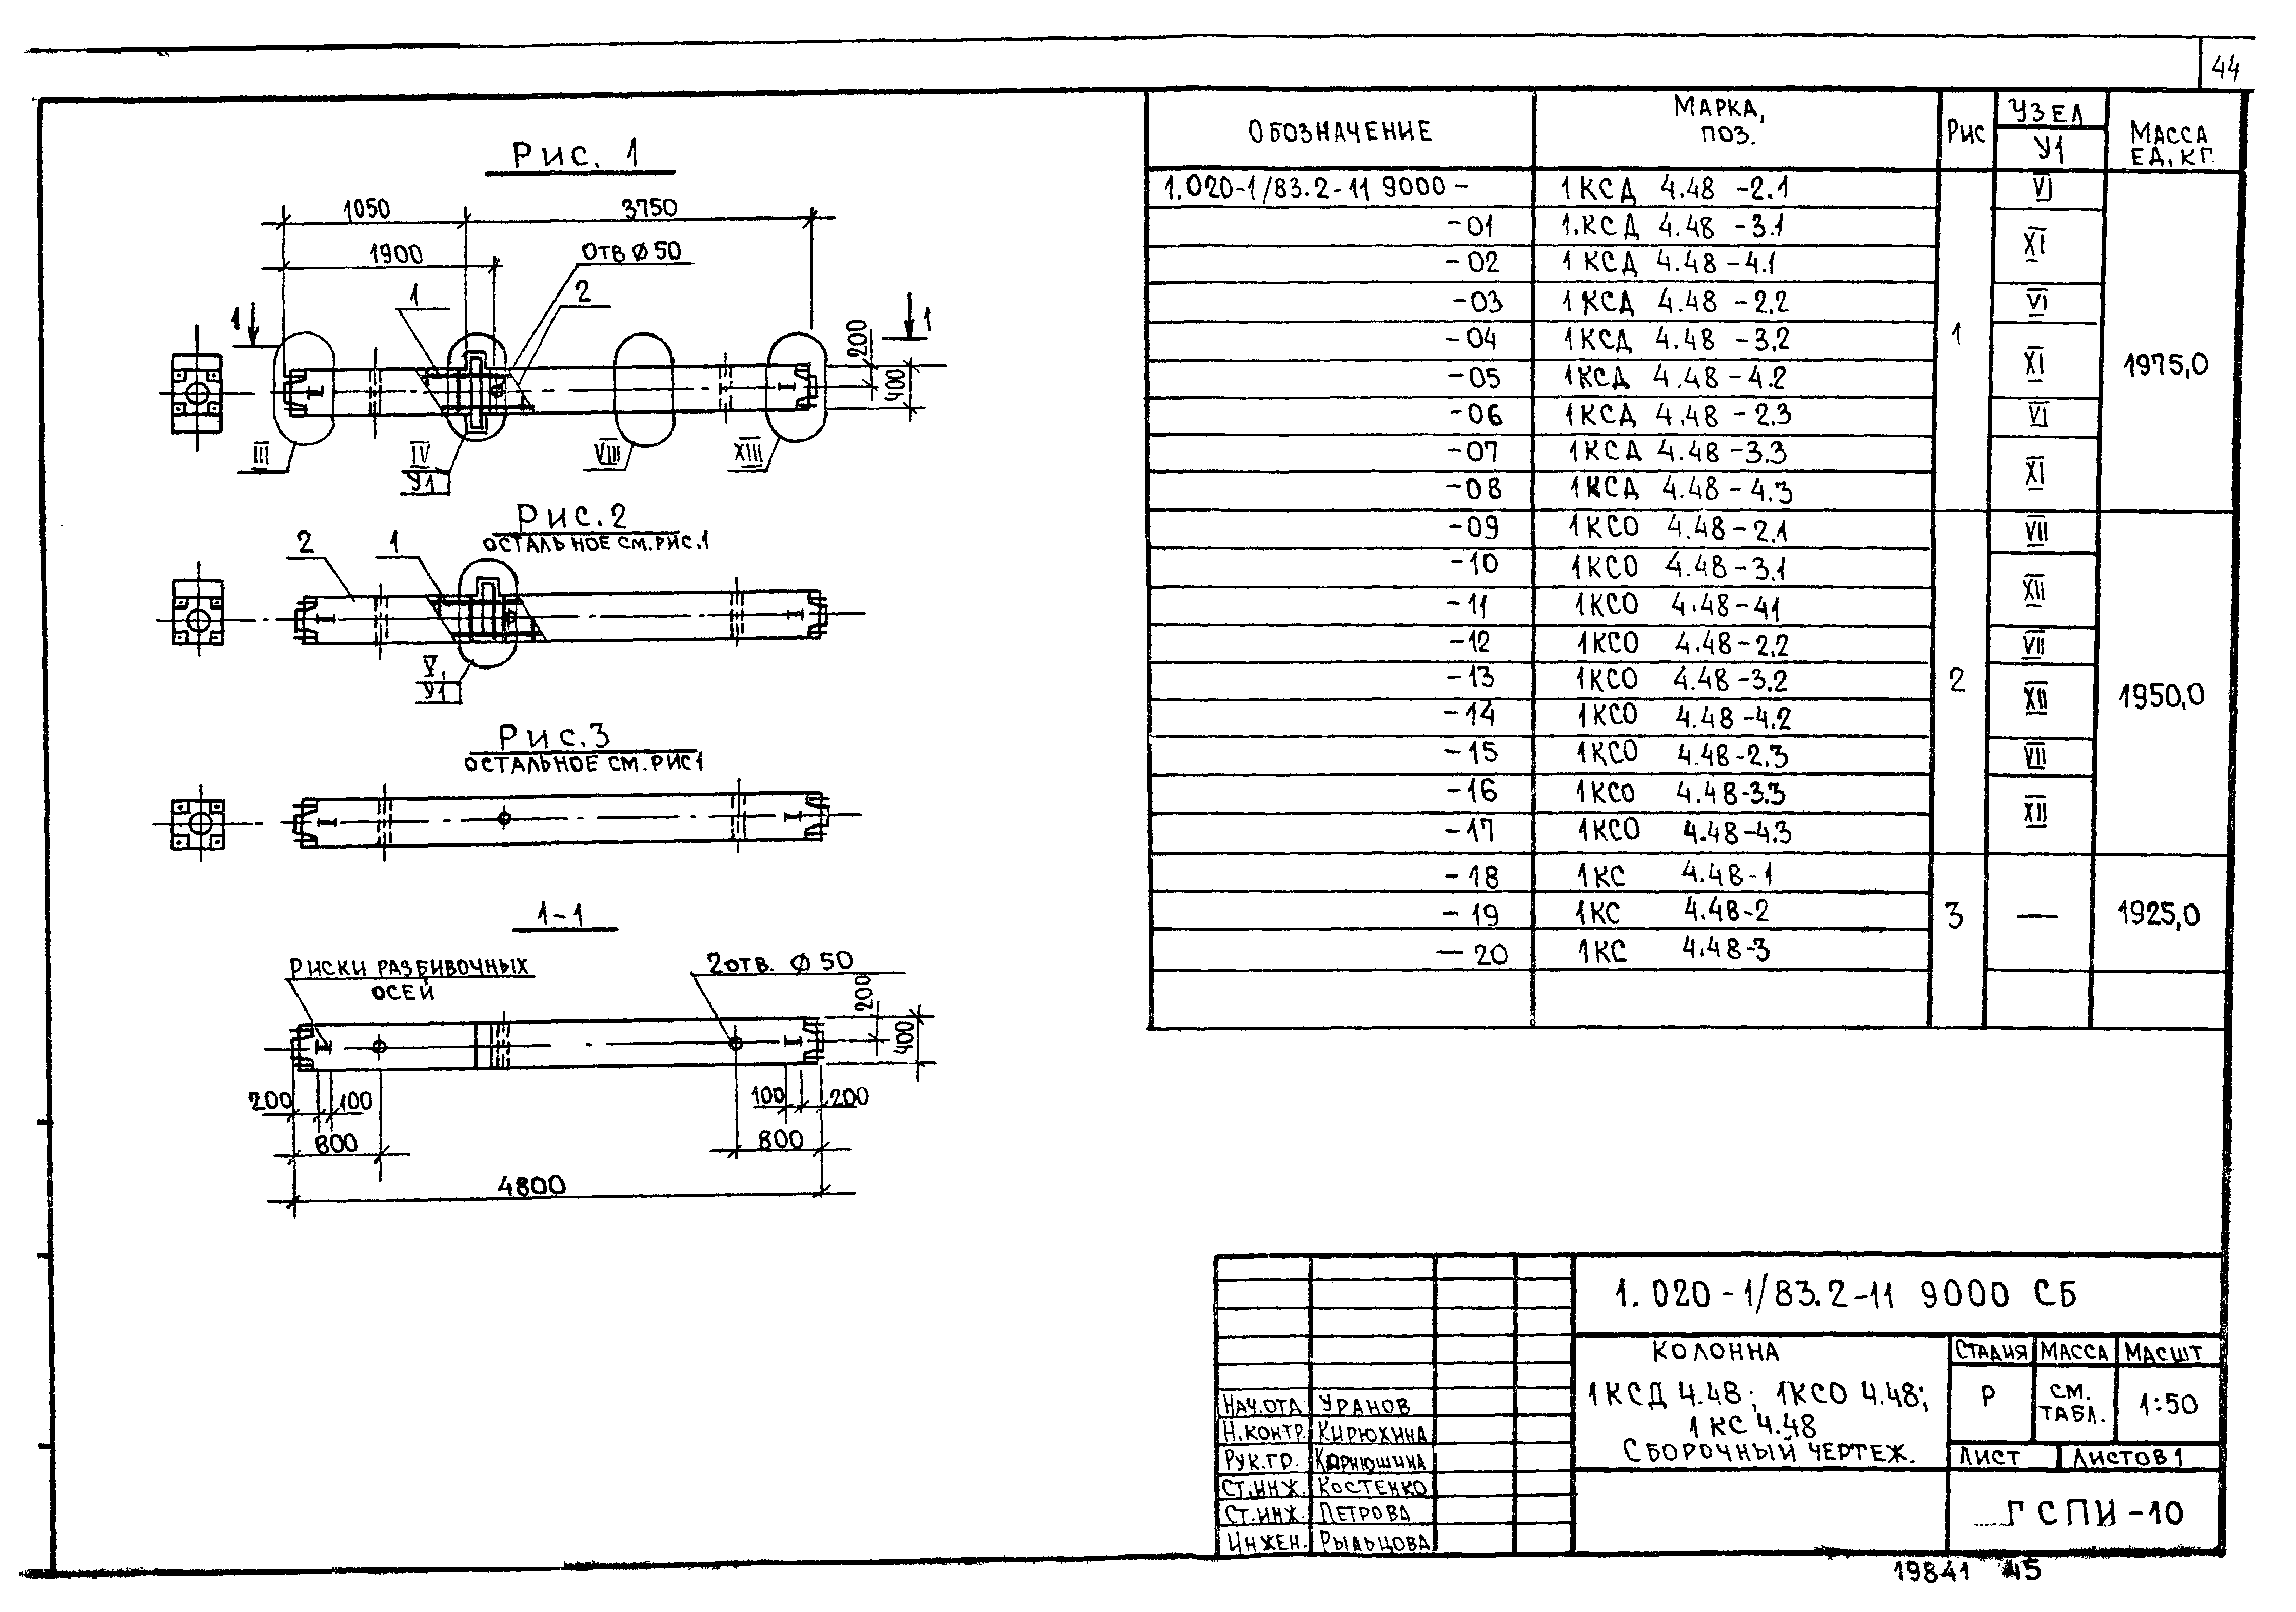 44
Рис. 1
1050
3750
1900
Отв Ø50
1
2
1
1
200
400
III
IV
У1
VIII
XIII
Рис. 2
ОСТАЛЬНОЕ СМ. РИС. 1
2
1
V
У1
Рис. 3
ОСТАЛЬНОЕ СМ. РИС 1
1-1
РИСКИ РАЗБИВОЧНЫХ
ОСЕЙ
2 отв. Ø50
200
400
200
100
100
200
800
800
4800
ОБОЗНАЧЕНИЕ
МАРКА,
ПОЗ.
Рис
УЗЕЛ
У1
МАССА
ЕД, КГ.
1.020-1/83.2-11 9000 - 1КСД 4.48 -2.1 VI
-01 1.КСД 4.48 -3.1 XI
-02 1КСД 4.48-4.1
-03 1КСД 4.48 -2.2 VI
-04 1КСД 4.48 -3.2 1
-05 1КСД 4.48-4.2 XI 1975,0
-06 1КСД 4.48 -2.3 VI
-07 1КСД 4.48-3.3
-08 1КСД 4.48-4.3 XI
-09 1КСО 4.48-2.1 VII
-10 1КСО 4.48-3.1
-11 1КСО 4.48-41 XII
-12 1КСО 4.48-2.2 VII
-13 1КСО 4.48-3.2 2 XII 1950,0
-14 1КСО 4.48-4.2
-15 1КСО 4.48-2.3 VII
-16 1КСО 4.48-3.3 XII
-17 1КСО 4.48-4.3
-18 1КС 4.48-1
-19 1КС 4.48-2 3 — 1925,0
-20 1КС 4.48-3
1.020-1/83.2-11 9000 СБ
КОЛОННА
1КСД 4.48; 1КСО 4.48;
1КС 4.48
СБОРОЧНЫЙ ЧЕРТЕЖ.
СТАДИЯ МАССА МАСШТ
Р СМ. ТАБЛ. 1:50
ЛИСТ ЛИСТОВ 1
ГСПИ-10
НАЧ.ОТД УРАНОВ
Н.КОНТР. КИРЮХИНА
РУК.ГР. КОРНЮШИНА
СТ.ИНЖ. КОСТЕНКО
СТ.ИНЖ. ПЕТРОВА
ИНЖЕН. РЫЛЬЦОВА
19841 45